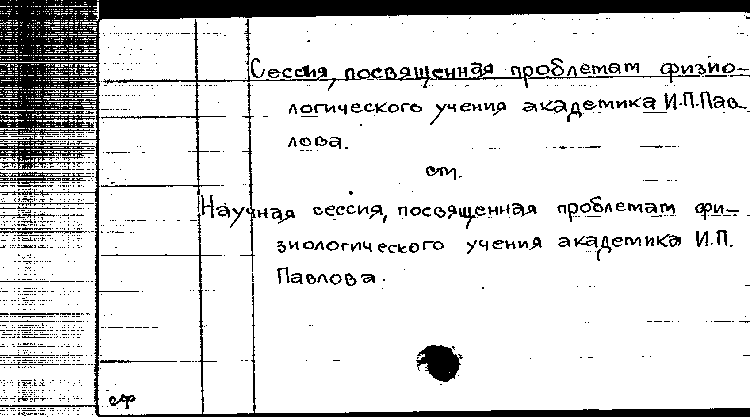 Сессия, посвященная проблемам физио-
логического учения академика И.П.Пав-
лова.
см.
Научная сессия, посвященная проблемам фи-
зиологического учения академика И.П.
Павлова.